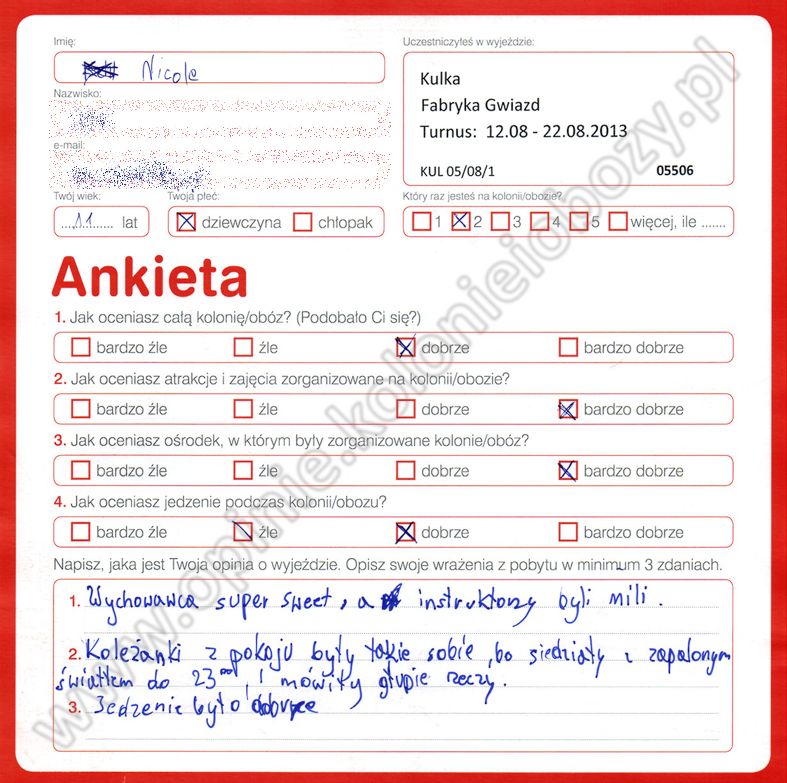 Imię:
Nicole
Uczestniczyłeś w wyjeździe:
Kulka
Fabryka Gwiazd
Turnus: 12.08 - 22.08.2013
KUL 05/08/1 05506
Nazwisko:
e-mail:
Twój wiek: Twoja płeć: Który raz jesteś na kolonii/obozie?
...11... lat dziewczyna chłopak 1 2 3 4 5 więcej, ile .......
Ankieta
1. Jak oceniasz całą kolonię/obóz? (Podobało Ci się?)
bardzo źle źle dobrze bardzo dobrze
2. Jak oceniasz atrakcje i zajęcia zorganizowane na kolonii/obozie?
bardzo źle źle dobrze bardzo dobrze
3. Jak oceniasz ośrodek, w którym były zorganizowane kolonie/obóz?
bardzo źle źle dobrze bardzo dobrze
4. Jak oceniasz jedzenie podczas kolonii/obozu?
bardzo źle źle dobrze bardzo dobrze
Napisz, jaka jest Twoja opinia o wyjeździe. Opisz swoje wrażenia z pobytu w minimum 3 zdaniach.
1. Wychowawca super sweet, a instruktorzy byli mili.
2. Koleżanki z pokoju były takie sobie, bo siedziały z zapalonym
światłem do 23⁰⁰, i mówiły głupie rzeczy.
3. Jedzenie było dobrze
www.opinie.kolonieiobozy.pl